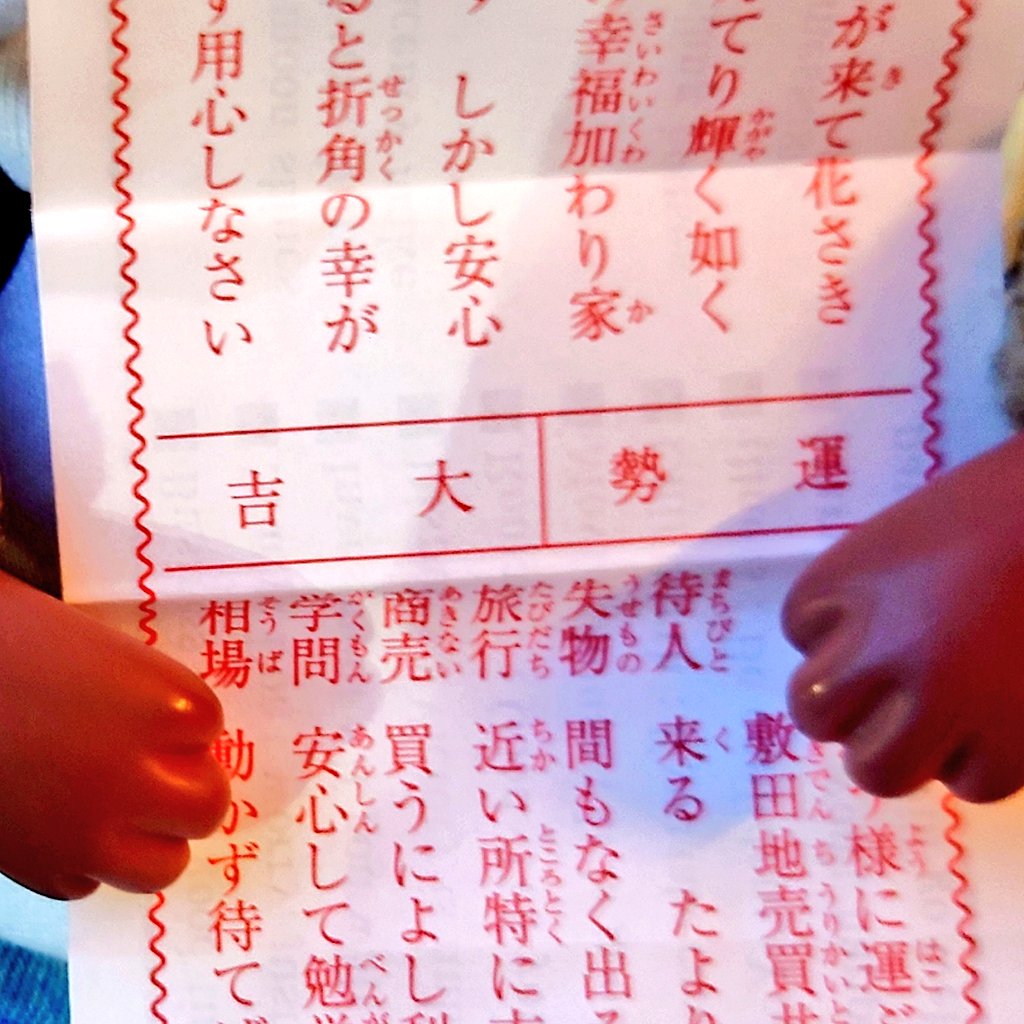 が来て花さき
てり輝く如く
幸福加わり家
しかし安心
ると折角の幸が
す用心しなさい
運勢 大吉
様に運
敷田地売買
待人 来る たより
失物 間もなく出
旅行 近い所特に
商売 買うによし
学問 安心して勉
相場 動かず待て